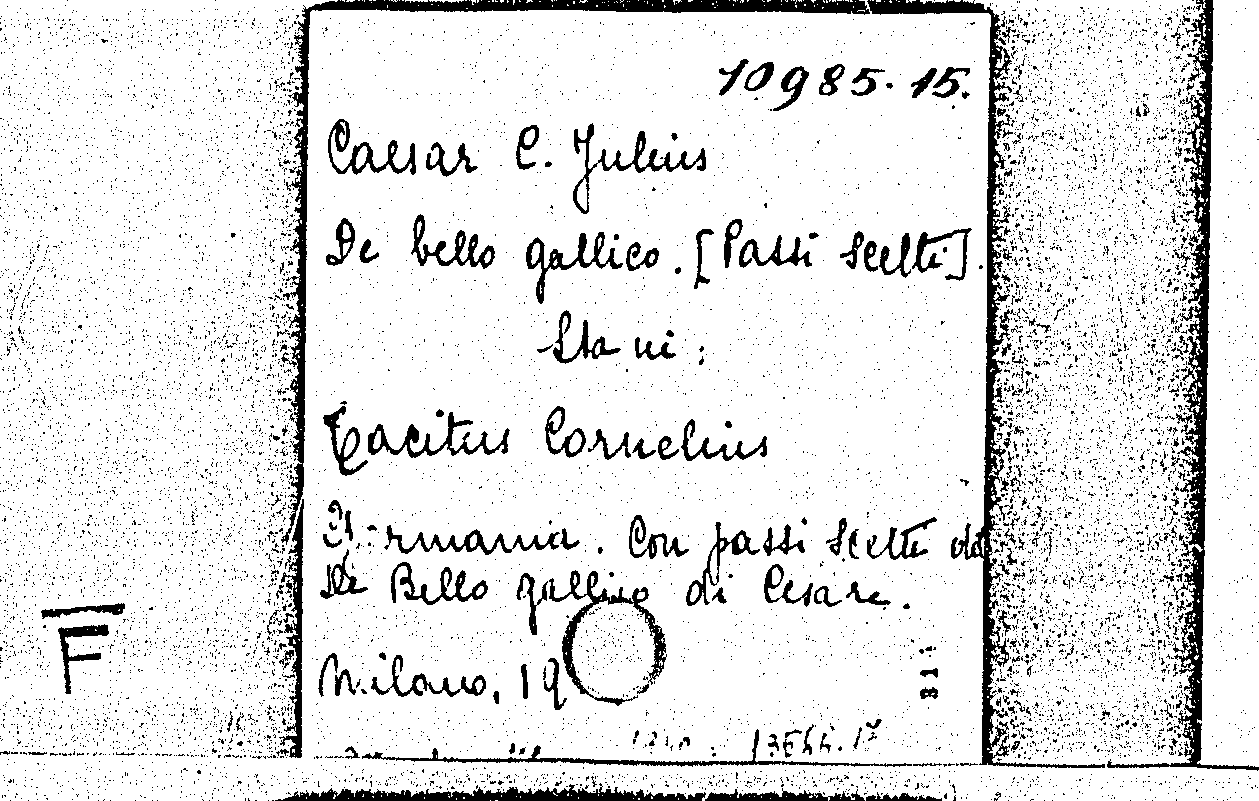 10985.15.
Caesar C. Julius
De bello gallico. [Passi scelti].
Sta in:
Tacitus Cornelius
Germania. Con passi scelti dal
De Bello gallico di Cesare.
Milano, 19
F